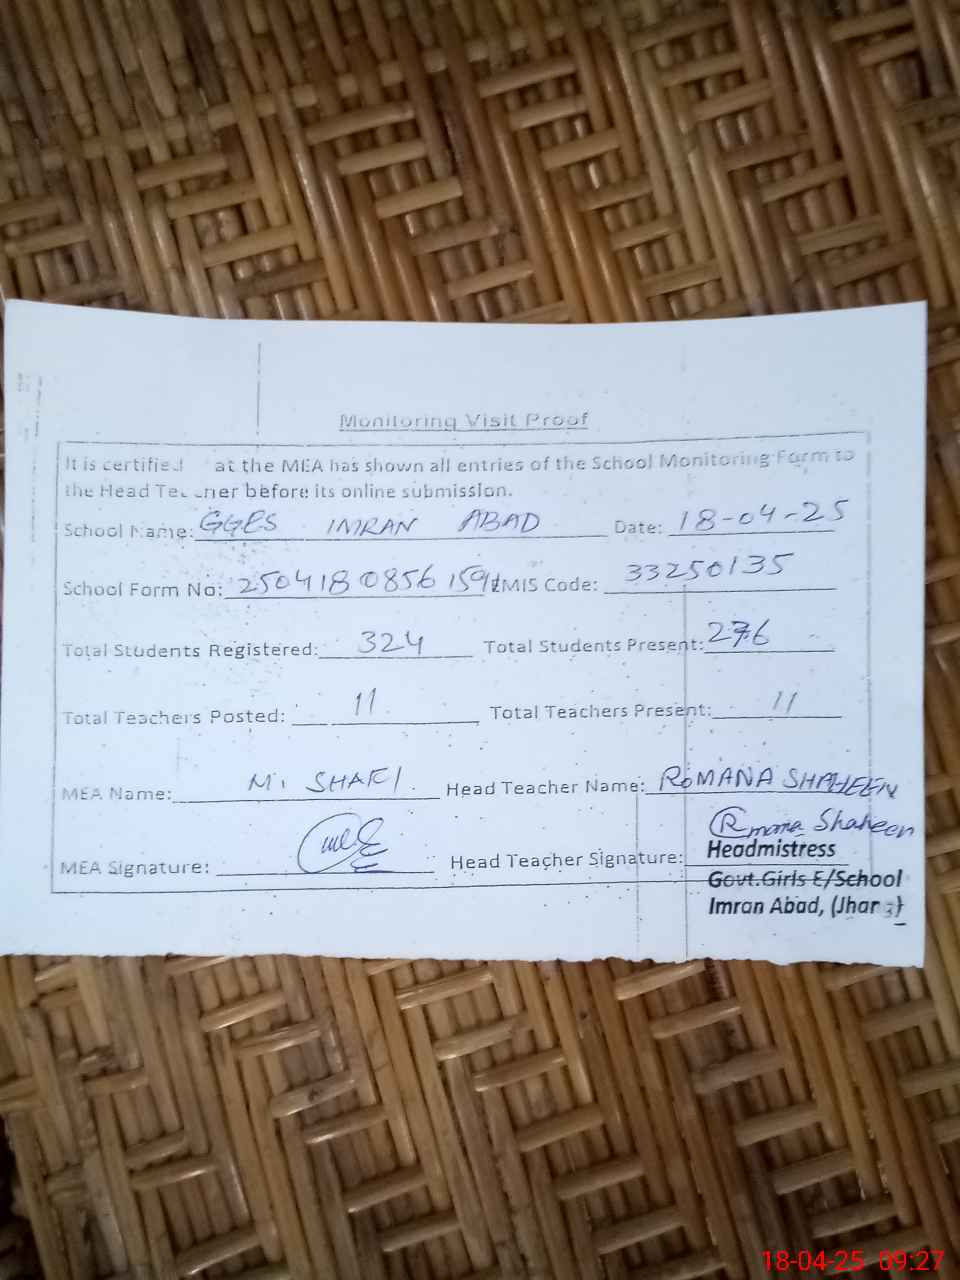 Monitoring Visit Proof
It is certified at the MEA has shown all entries of the School Monitoring Form to
the Head Teacher before its online submission.
School Name: GGES IMRAN ABAD Date: 18-04-25
School Form No: 2504180856159 EMIS Code: 33250135
Total Students Registered: 324 Total Students Present: 276
Total Teachers Posted: 11 Total Teachers Present: 11
MEA Name: M. SHAFI. Head Teacher Name: ROMANA SHAHEEN
MEA Signature: Head Teacher Signature: Romana Shaheen
Headmistress
Govt.Girls E/School
Imran Abad, (Jhang)
18-04-25 09:27